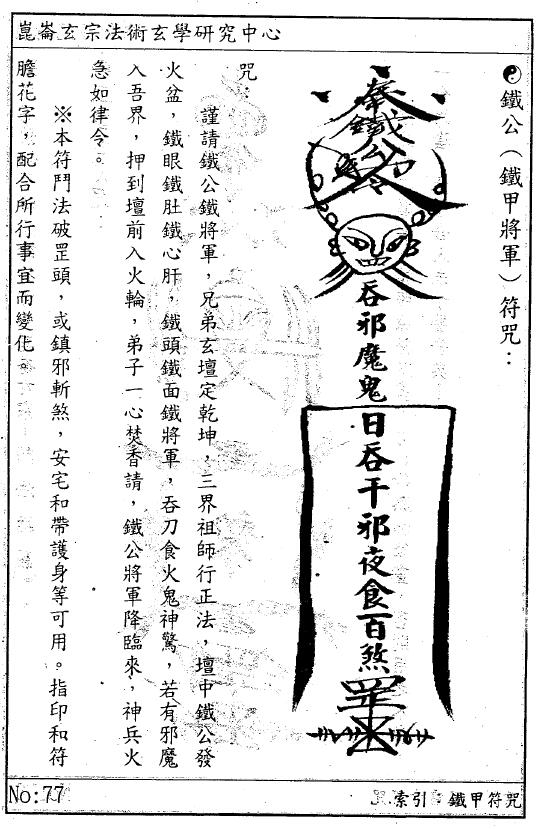 崑崙玄宗法術玄學研究中心
☯鐵公（鐵甲將軍）符咒：
奉
鐵公
令
吞邪魔鬼
日吞千邪夜食百煞
罡
咒：
謹請鐵公鐵將軍，兄弟玄壇定乾坤，三界祖師行正法，壇中鐵公發
火盆，鐵眼鐵肚鐵心肝，鐵頭鐵面鐵將軍，吞刀食火鬼神驚，若有邪魔
入吾界，押到壇前入火輪，弟子一心焚香請，鐵公將軍降臨來，神兵火
急如律令。
※本符鬥法破罡頭，或鎮邪斬煞，安宅和帶護身等可用。指印和符
膽花字，配合所行事宜而變化。
No:77
索引：鐵甲符咒